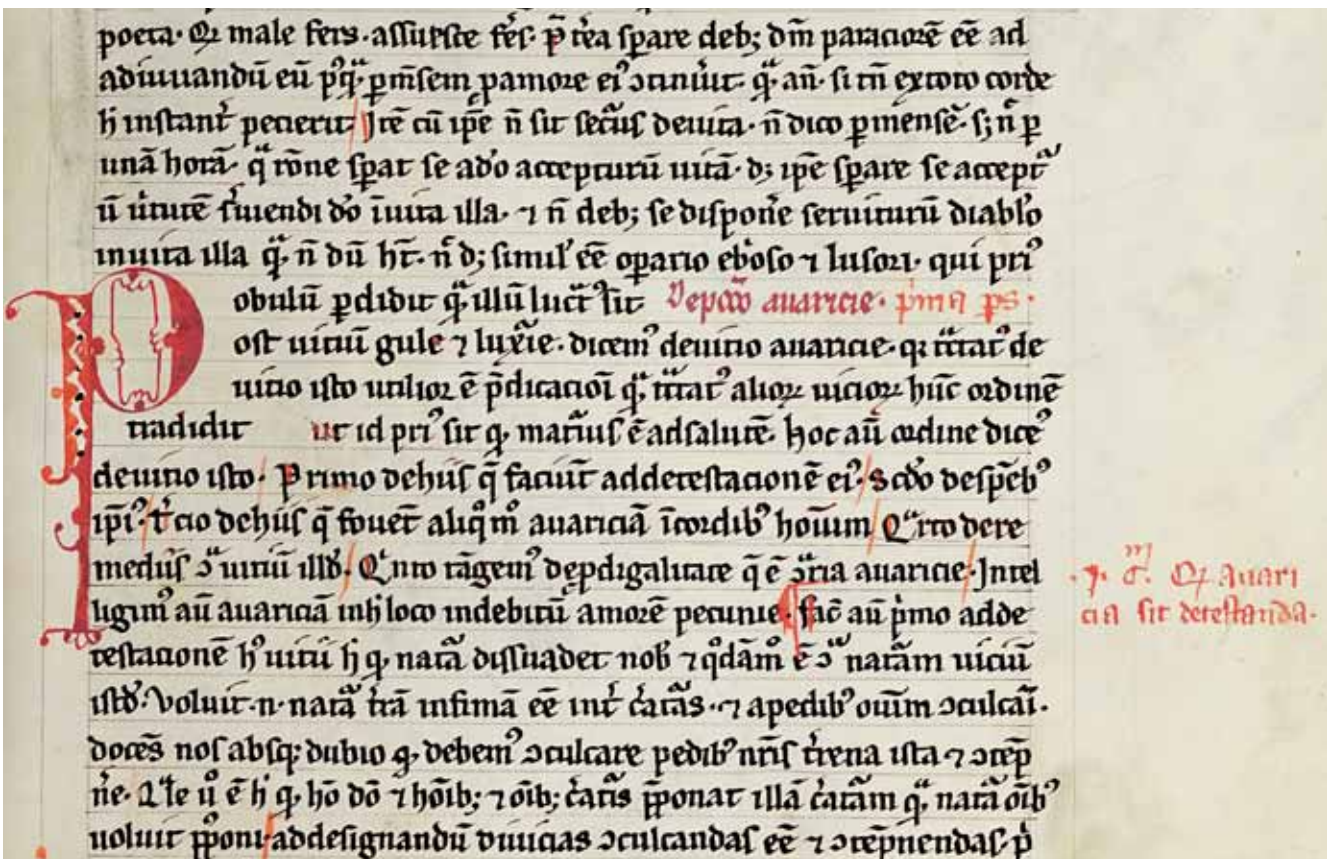 poeta· Qͥ male fers· assuesce feꝛs· p̄ tᷓea sꝑare deb; dm̄ paraciorē eē ad
adiuuandū eū pꝰqᷓ ꝑ m̄sem ꝑ amore eiꝰ ꝯtinuit· qᷓ añ· si tn̄ ex toto corde
h̄ instant̓ pecierit· Itē cū ip̄e n̄ sit secᷓus de uita· n̄ dico ꝑ mensē· s; n̄ ꝑ
unā horā· q̄ rōne sꝑat se a do accepturū uitā· d; ip̄e sꝑare se acceptᷓ
ū ùtutē s̓uiendi do ī uita illa· ⁊ n̄ deb; se dispone̓ seruiturū diablo
in uita illa qᷓ n̄ dū ht̄· n̄ d; simil̓ eē oꝑario eb̓oso ⁊ lusori· qui priꝰ
obulū ꝑdidit qᷓ illū luct̓ sit De pcc̄o auaricie· p̓ma ps·
ost uiciū gule ⁊ luxᷓie· dicemꝰ de uitio auaricie· q; tᷓctatꝰ de
uitio isto utilior ē p̄dicacioī qᷓ tᷓctatꝰ alioꝝ uicioꝝ hūc ordinē
tradidit ut id priꝰ sit ꝙ magiꝰ ē ad salutē. hoc aū ordine diceꝰ
de uitio isto· Primo de hiis q̄ faciūt ad detestacionē eiꝰ· Scdo de sp̄ebꝰ
ip̄iꝰ· t̓cio de hiis q̄ fouēt aliq̄m auariciā ī cordibꝰ hoīum Qᷓrto de re
mediis ꝯᷓ uitiū illd· Qͥnto tāgemꝰ de ꝓdigalitate q̄ ē ꝯᷓria auaricie· Intel
ligimꝰ aū auariciā in h̄ loco indebitū amorē pecunie· fac̄ aū p̓mo ad de
testacionē hꝰ uitii h̄ ꝙ natᷓa dissuadet nob̄ ⁊ qͦdāmͦ ē ꝯᷓ natᷓam uiciū
istd· Voluit· n· natᷓa tr̄ā infimā eē int̓ c̓atᷓas· ⁊ a pedibꝰ oīum ꝯculcāī·
docēs nos absq; dubio ꝙ debemꝰ ꝯculcare pedibꝰ nr̄is t̓rena ista ⁊ ꝯtēp
ne̓· Qᷓle ù ē h̄ ꝙ hō dō ⁊ hōib; ⁊ oīb; c̓atis p̄ponat illā c̓atᷓam qᷓ natᷓa oībꝰ
uoluit p̄poni· ad designandū diuicias ꝯculcandas eē ⁊ ꝯtēpnendas· p̓
·ꝫ· c̄ᵐ· Qͩ Auari
cia sit detestanda·